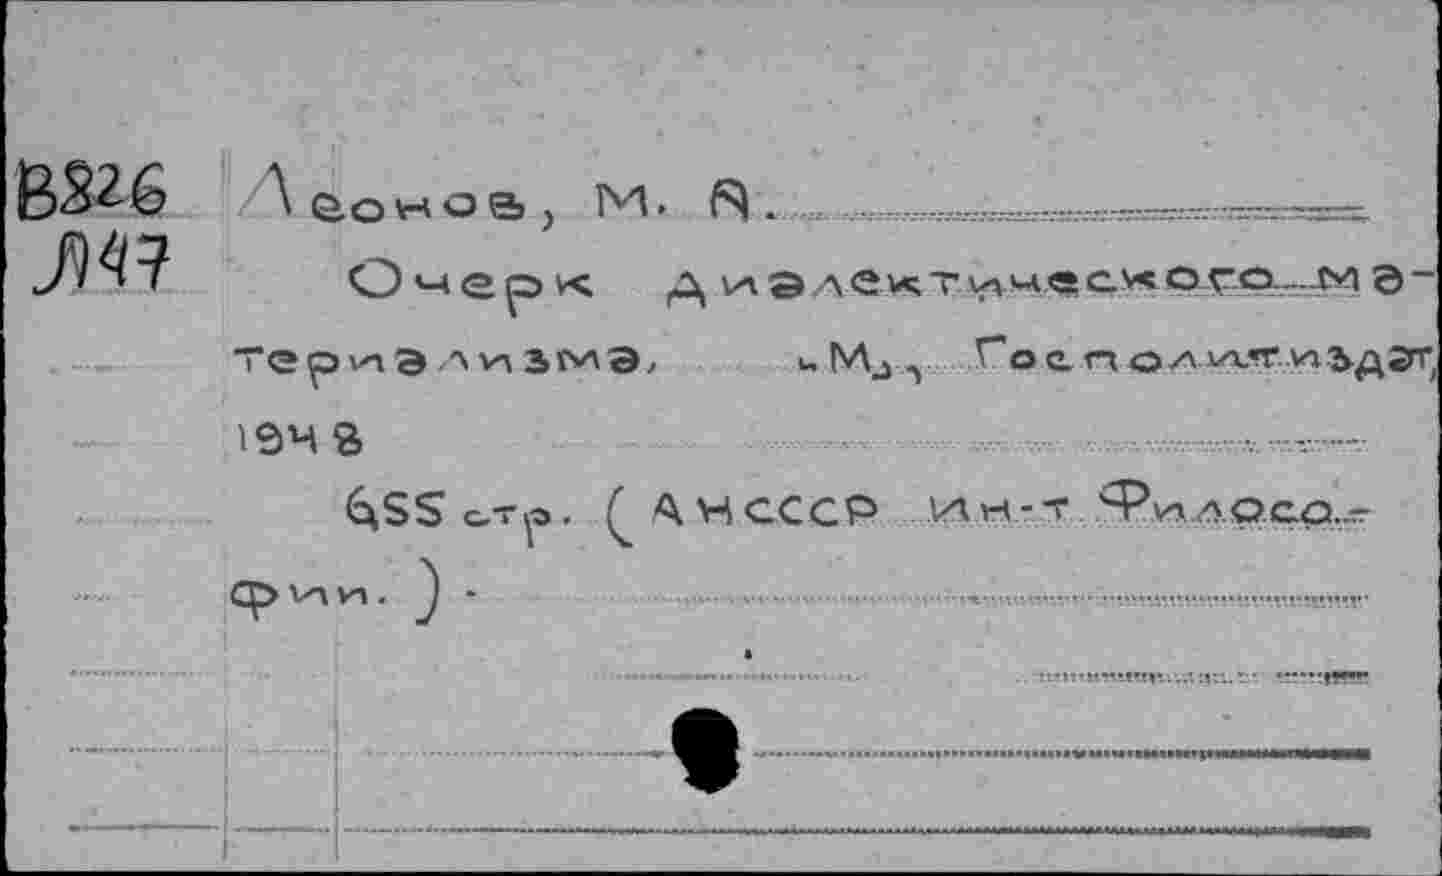 В826
Л47
Леонов, М. А.
Очерк диалектического ма-
териализма, М., Госполитиздат,
1948
655 стр. (АН СССР Ин-т Филосо-
фии.).